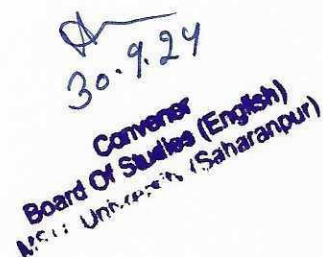 30.9.24
Convenor
Board Of Studies (English)
University (Saharanpur)